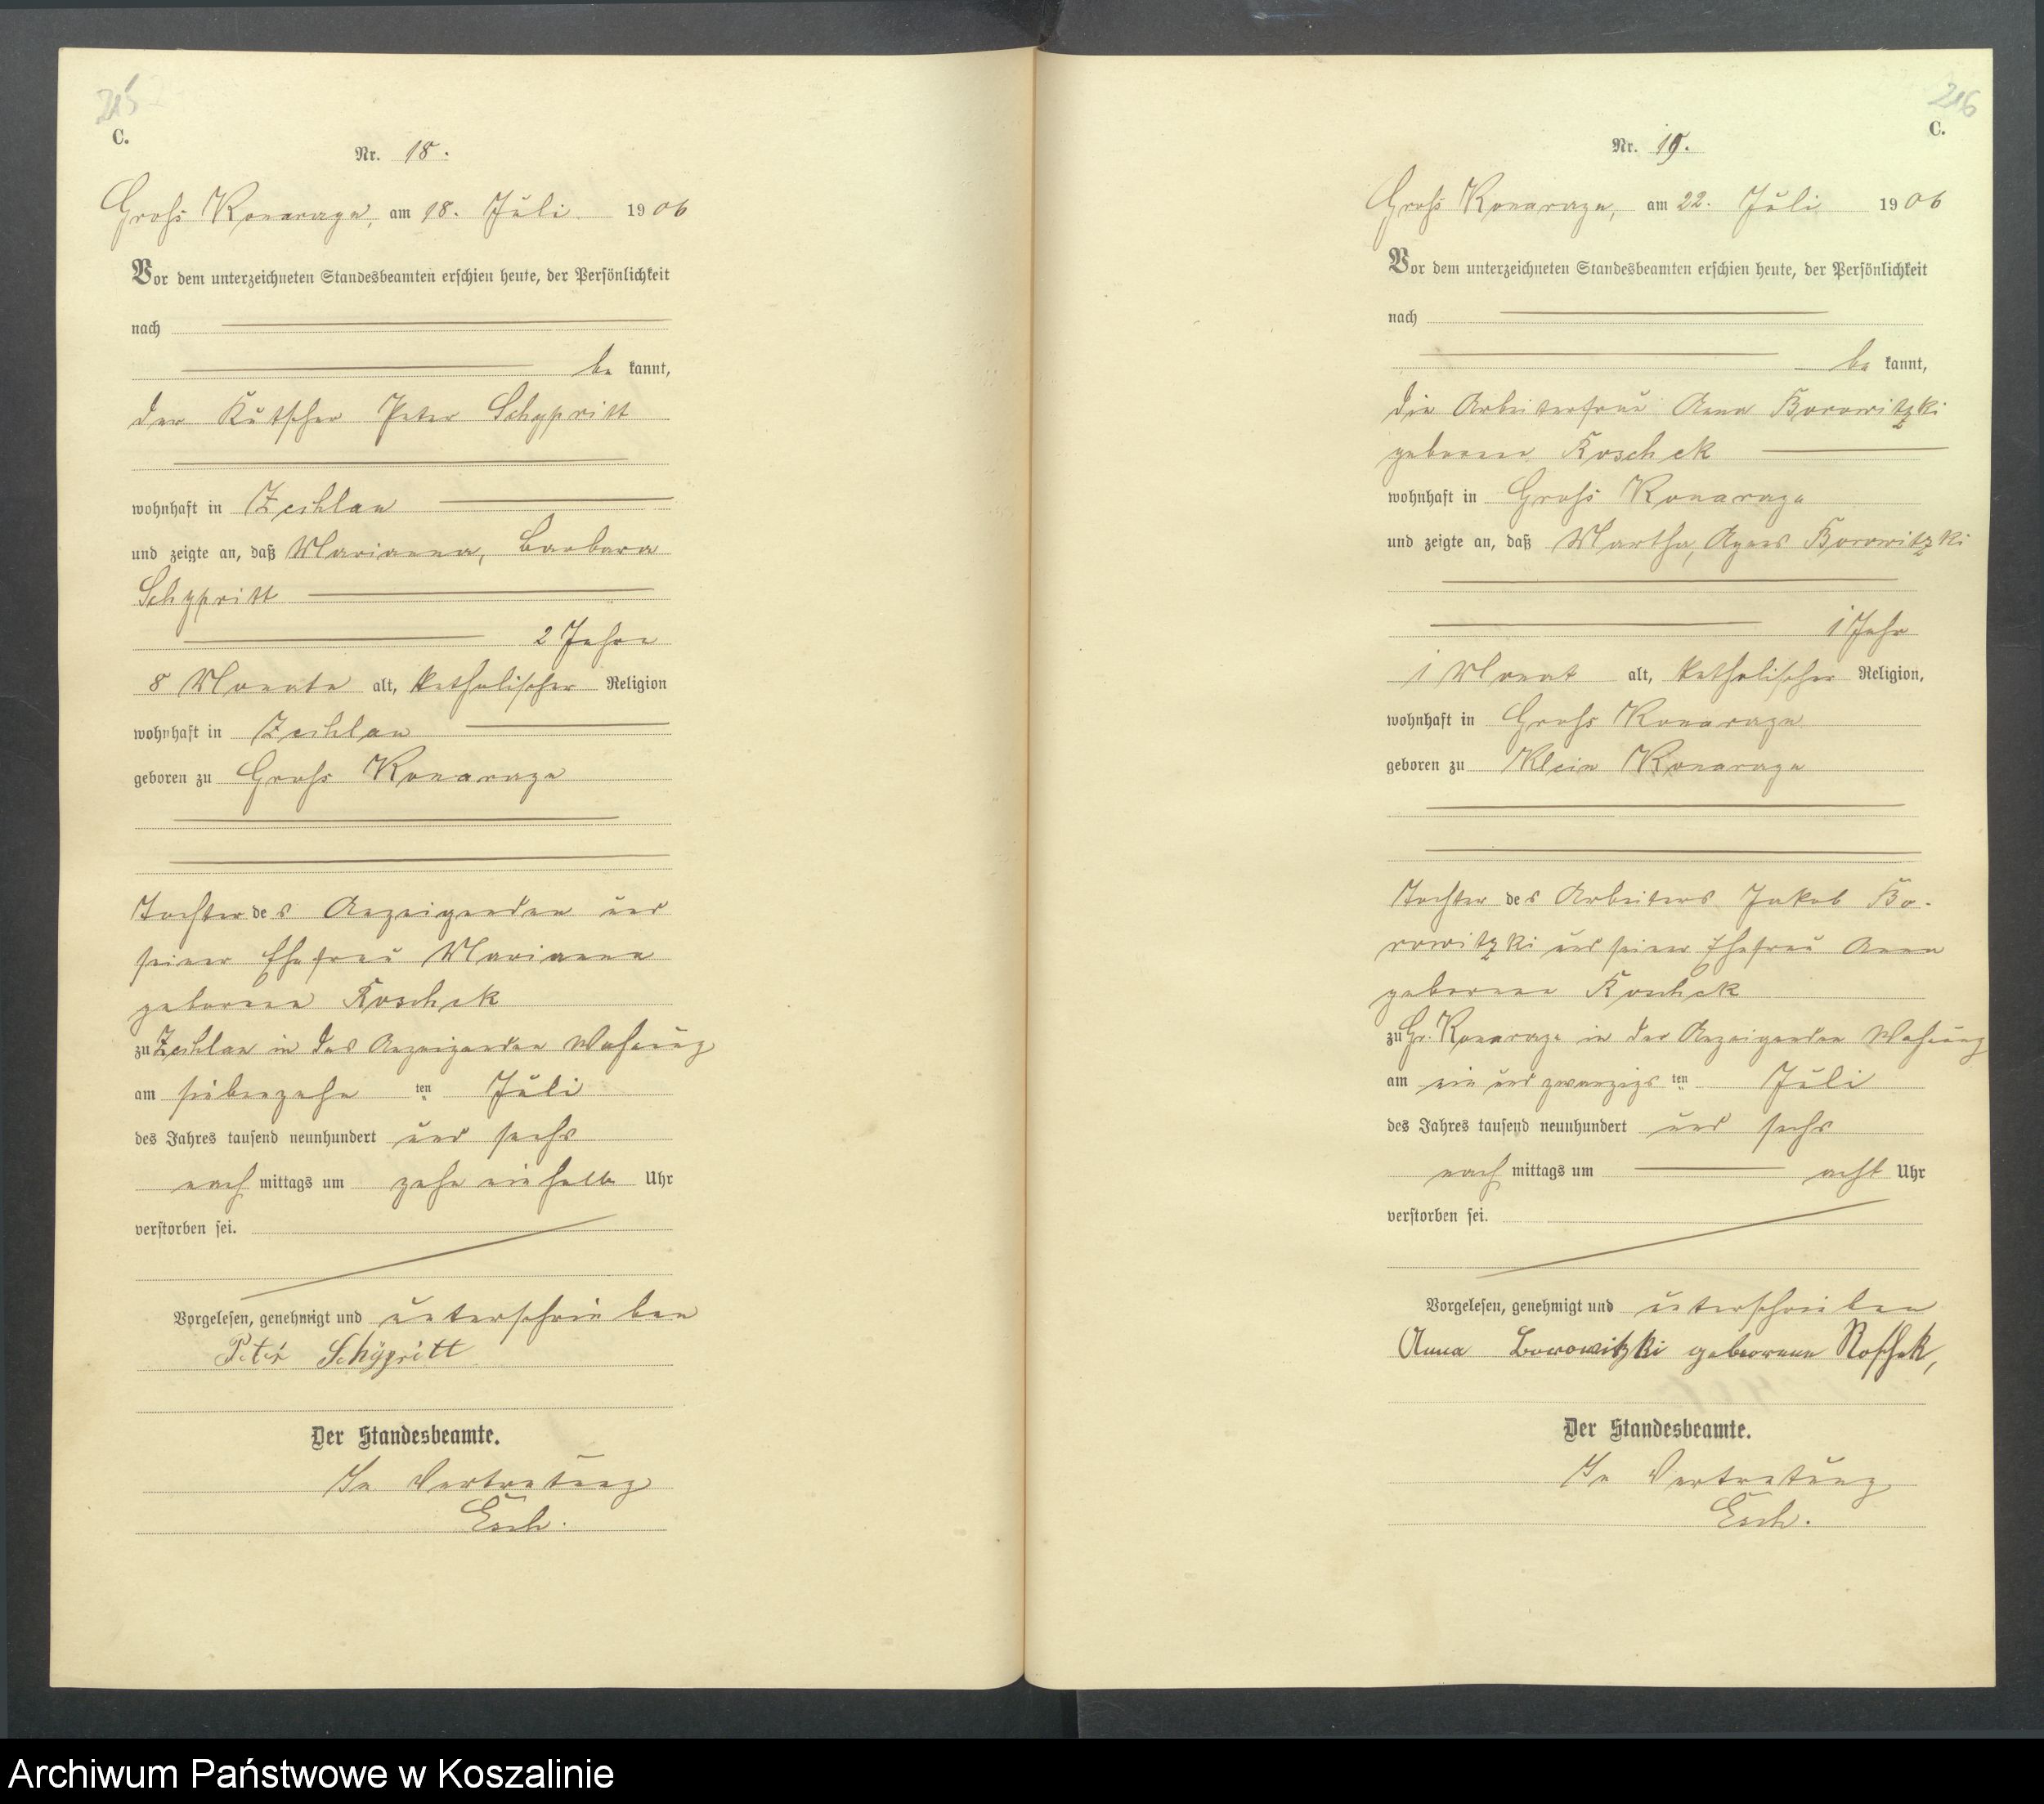 215
C.
Nr. 18.
Groß Konarzyn, am 18. Juli 1906
Vor dem unterzeichneten Standesbeamten erschien heute, der Persönlichkeit
nach
be kannt,
der Kutscher Peter Schypritt
wohnhaft in Zechlau
und zeigte an, daß Marianna, Barbara
Schypritt
2 Jahre
8 Monate alt, katholischer Religion
wohnhaft in Zechlau
geboren zu Groß Konarzyn
Tochter des Anzeigenden und
seiner Ehefrau Marianna
geborene Koschek
zu Zechlau in des Anzeigenden Wohnung
am siebenzehn ten Juli
des Jahres tausend neunhundert und sechs
nach mittags um zehn einhalb Uhr
verstorben sei.
Vorgelesen, genehmigt und unterschrieben
Peter Schÿpritt
Der Standesbeamte.
In Vertretung
Esch.
216
C.
Nr. 19.
Groß Konarzyn, am 22. Juli 1906
Vor dem unterzeichneten Standesbeamten erschien heute, der Persönlichkeit
nach
be kannt,
die Arbeiterfrau Anna Borowitzki
geborene Koschek
wohnhaft in Groß Konarzyn
und zeigte an, daß Martha, Agnes Borowitzki
1 Jahr
1 Monat alt, katholischer Religion,
wohnhaft in Groß Konarzyn
geboren zu Klein Konarzyn
Tochter des Arbeiters Jakob Bo-
rowitzki und seiner Ehefrau Anna
geborene Koschek
zu Gr. Konarzyn in der Anzeigenden Wohnung
am ein und zwanzigs ten Juli
des Jahres tausend neunhundert und sechs
nach mittags um acht Uhr
verstorben sei.
Vorgelesen, genehmigt und unterschrieben
Anna Borowitzki geborenne Koschek,
Der Standesbeamte.
In Vertretung
Esch.
Archiwum Państwowe w Koszalinie